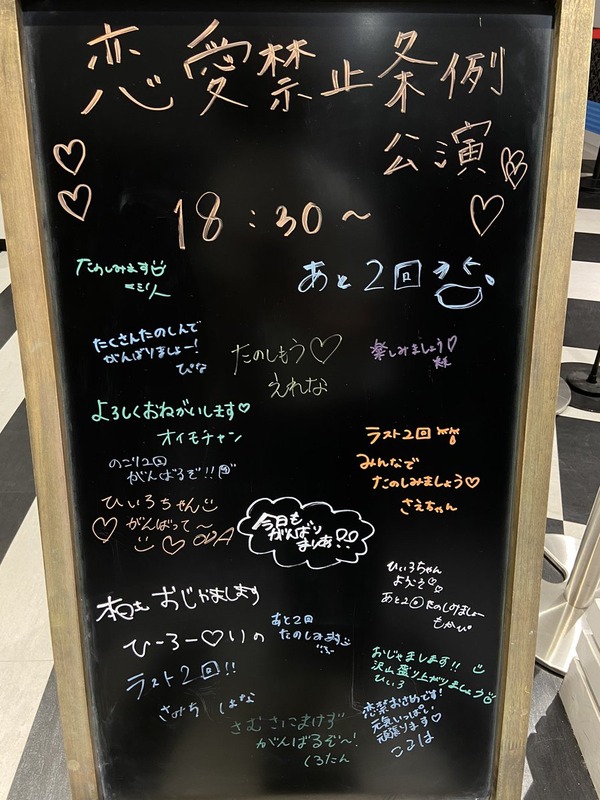 恋愛禁止条例
公演
18:30～
たのしみます
あと2回
たくさんたのしんで
がんばりましょー!
ぴな
たのしもう♡
えれな
楽しみましょう♡
よろしくおねがいします♡
オイモチャン
ラスト2回
のこり2回
がんばるぞ!!
みんなで
たのしみましょう♡
さえちゃん
ひぃろちゃん
がんばって〜
今日も
がんばり
まりあ!!
ひぃろちゃん
ようこそ
あと2回たのしみましょー
もかぴ
本日も おじゃまします
ひーろー♡りの
あと2回
たのしみます
ラスト2回!!
おじゃまします!!
沢山盛り上がりましょう
ひぃろ
さむさにまけず
がんばるぞ〜!
くろたん
恋禁おさめです!
元気いっぱい
頑張ります♡
ここは